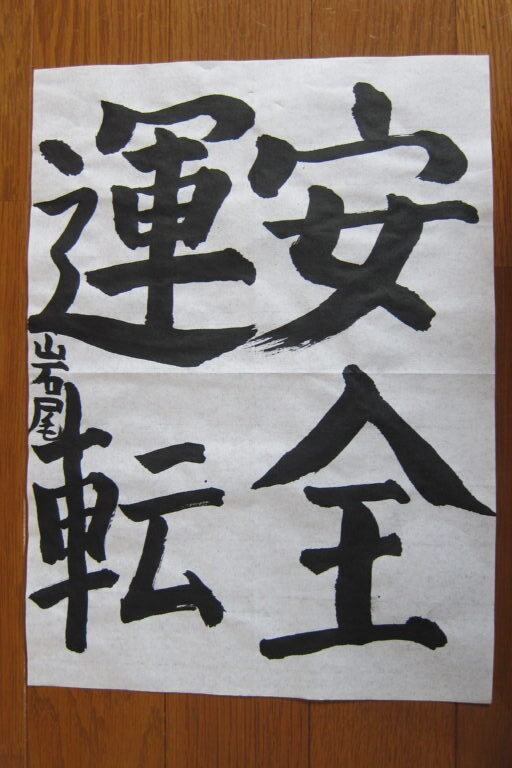 安全
運転
岩尾